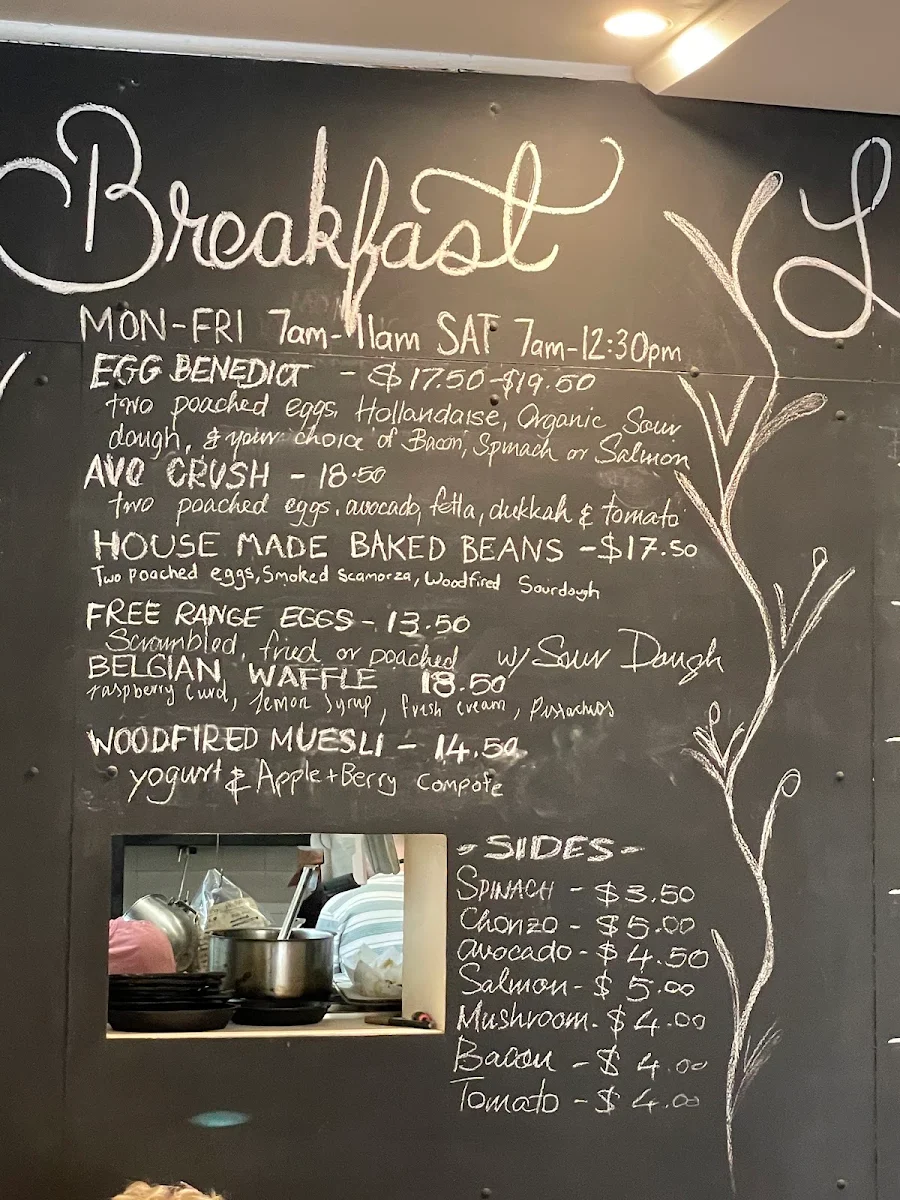 Breakfast
MON-FRI 7am-11am SAT 7am-12:30pm
EGG BENEDICT - $17.50-$19.50
two poached eggs, Hollandaise, Organic Sour
dough, & your choice of Bacon, Spinach or Salmon
AVO CRUSH - 18.50
two poached eggs, avocado, fetta, dukkah & tomato
HOUSE MADE BAKED BEANS - $17.50
Two poached eggs, Smoked Scamorza, Woodfired Sourdough
FREE RANGE EGGS - 13.50
Scrambled, fried or poached w/ Sour Dough
BELGIAN WAFFLE 18.50
raspberry Curd, lemon syrup, fresh cream, Pistachios
WOODFIRED MUESLI - 14.50
yogurt & Apple + Berry compote
- SIDES -
SPINACH - $3.50
Chorizo - $5.00
avocado - $4.50
Salmon - $5.00
Mushroom - $4.00
Bacon - $4.00
Tomato - $4.00